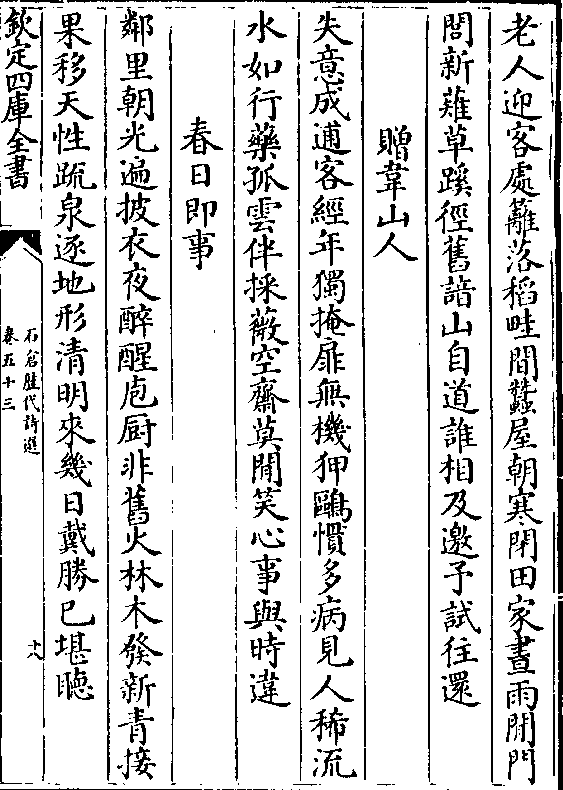 老人迎客處籬落稻畦間蠶屋朝寒閉田家晝雨閒門
問新薙草蹊徑舊諳山自道誰相及邀予試往還
贈韋山人
失意成逋客經年獨掩扉無機狎鷗慣多病見人稀流
水如行藥孤雲伴採薇空齋莫閒笑心事與時違
春日即事
鄰里朝光遍披衣夜醉醒庖厨非舊火林木發新青接
果移天性疏泉逐地形清明來幾日戴勝已堪聽
欽定四庫全書
石倉歷代詩選
卷五十三
十八